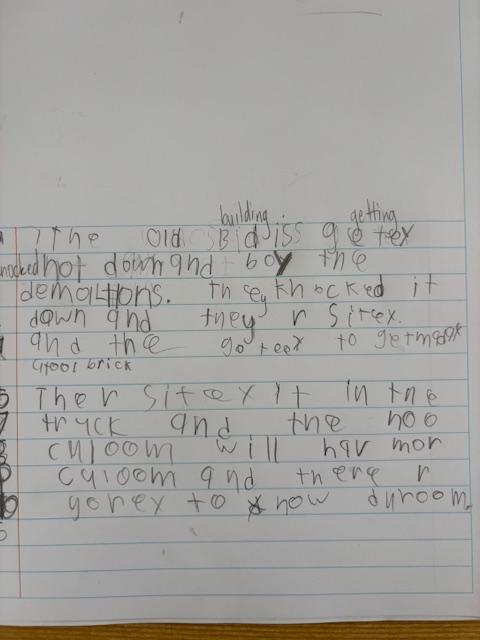 building getting
The old Bidiss getex
nocked not down and boy the
demoltions. they knocked it
down and they r Sitex.
and the goteex to getmook
brick
Ther sitex it in the
truck and the noo
cyloom will hav mor
cyloom and there r
gorex to know